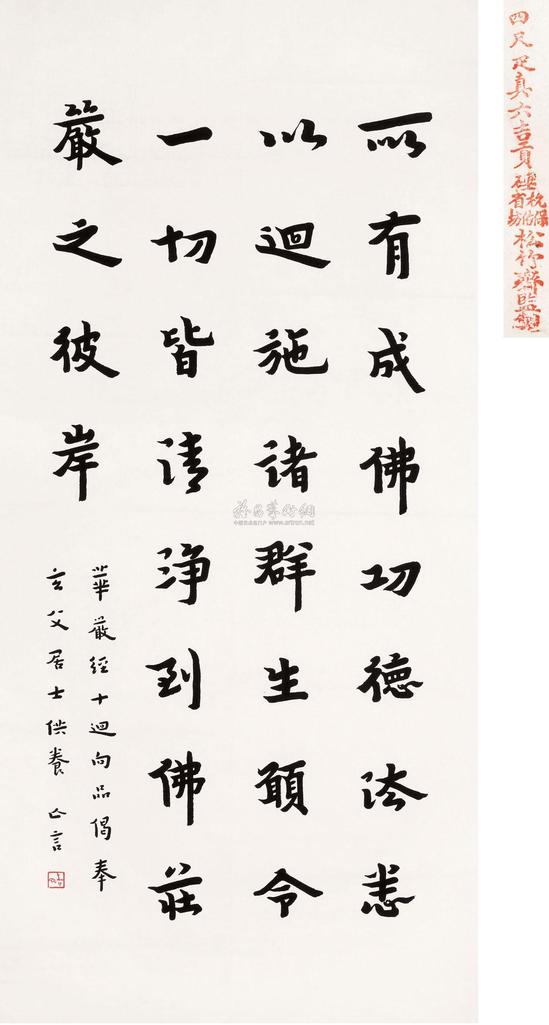 所有成佛功德法悉
以迴施諸群生願令
一切皆清淨到佛莊
嚴之彼岸
華嚴經十迴向品偈奉
玄父居士供養 止言
四尺疋真六吉貢
杭省保佑坊松竹齋監製
www.artron.net